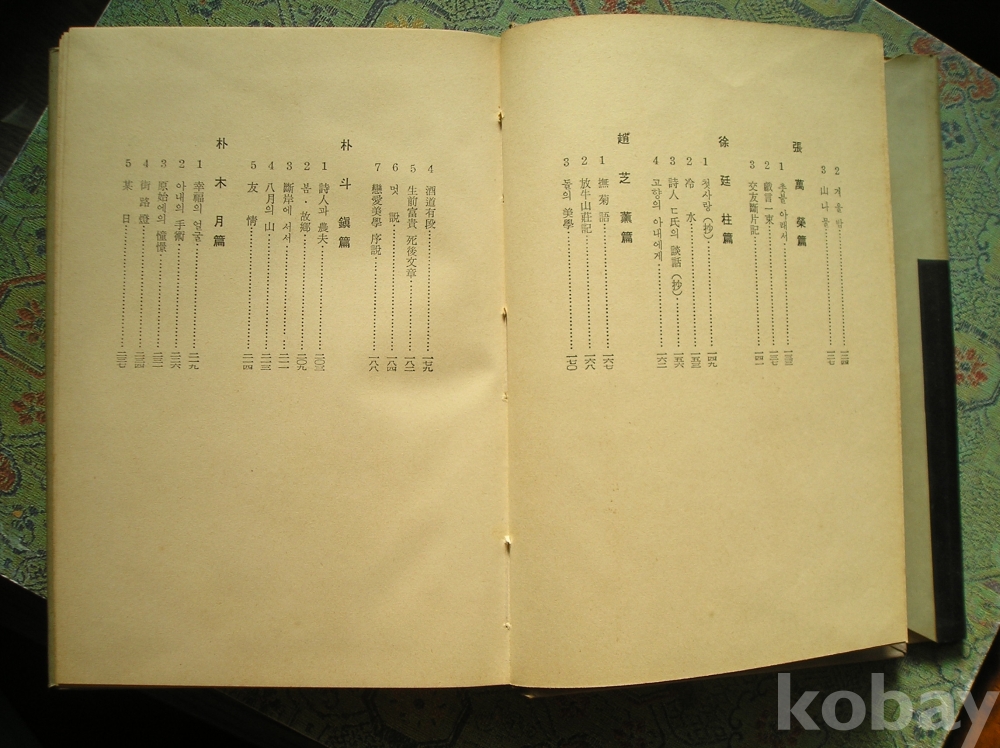 2 겨울밤 一二四
3 山나물 一二七
張萬榮篇
1 등불 아래서 一三三
2 戱言一束 一三七
3 交友斷片記 一四一
徐廷柱篇
1 첫사랑 (抄) 一四九
2 冷水 一五三
3 詩人 ㄷ氏의 談話 (抄) 一五六
4 고향의 아내에게 一六二
趙芝薰篇
1 撫菊語 一六七
2 放牛山莊記 一六八
3 돌의 美學 一七〇
4 酒道有段 一七九
5 生前富貴 死後文章 一八二
6 멋 說 一八四
7 戀愛美學 序說 一八八
朴斗鎭篇
1 詩人과 農夫 二〇三
2 봄·故鄕 二〇九
3 斷岸에 서서 二一一
4 八月의 山 二一三
5 友情 二一四
朴木月篇
1 幸福의 얼굴 二一九
2 아내의 手術 二二六
3 原始에의 憧憬 二三二
4 街路燈 二三四
5 某日 二三七
kobay